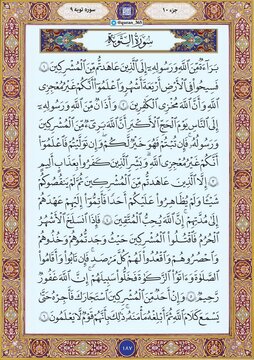 جزء ۱۰
سوره توبه ۹
سُورَةُ التَّوْبَةِ
بَرَآءَةٌ مِّنَ ٱللَّهِ وَرَسُولِهِۦٓ إِلَى ٱلَّذِينَ عَٰهَدتُّم مِّنَ ٱلْمُشْرِكِينَ ١
فَسِيحُوا۟ فِى ٱلْأَرْضِ أَرْبَعَةَ أَشْهُرٍ وَٱعْلَمُوٓا۟ أَنَّكُمْ غَيْرُ مُعْجِزِى
ٱللَّهِ وَأَنَّ ٱللَّهَ مُخْزِى ٱلْكَٰفِرِينَ ٢ وَأَذَٰنٌ مِّنَ ٱللَّهِ وَرَسُولِهِۦٓ
إِلَى ٱلنَّاسِ يَوْمَ ٱلْحَجِّ ٱلْأَكْبَرِ أَنَّ ٱللَّهَ بَرِىٓءٌ مِّنَ ٱلْمُشْرِكِينَ
وَرَسُولُهُۥ فَإِن تُبْتُمْ فَهُوَ خَيْرٌ لَّكُمْ وَإِن تَوَلَّيْتُمْ فَٱعْلَمُوٓا۟
أَنَّكُمْ غَيْرُ مُعْجِزِى ٱللَّهِ وَبَشِّرِ ٱلَّذِينَ كَفَرُوا۟ بِعَذَابٍ أَلِيمٍ
٣ إِلَّا ٱلَّذِينَ عَٰهَدتُّم مِّنَ ٱلْمُشْرِكِينَ ثُمَّ لَمْ يَنقُصُوكُمْ
شَيْـًٔا وَلَمْ يُظَٰهِرُوا۟ عَلَيْكُمْ أَحَدًا فَأَتِمُّوٓا۟ إِلَيْهِمْ عَهْدَهُمْ
إِلَىٰ مُدَّتِهِمْ إِنَّ ٱللَّهَ يُحِبُّ ٱلْمُتَّقِينَ ٤ فَإِذَا ٱنسَلَخَ ٱلْأَشْهُرُ
ٱلْحُرُمُ فَٱقْتُلُوا۟ ٱلْمُشْرِكِينَ حَيْثُ وَجَدتُّمُوهُمْ وَخُذُوهُمْ
وَٱحْصُرُوهُمْ وَٱقْعُدُوا۟ لَهُمْ كُلَّ مَرْصَدٍ فَإِن تَابُوا۟ وَأَقَامُوا۟
ٱلصَّلَوٰةَ وَءَاتَوُا۟ ٱلزَّكَوٰةَ فَخَلُّوا۟ سَبِيلَهُمْ إِنَّ ٱللَّهَ غَفُورٌ
رَّحِيمٌ ٥ وَإِنْ أَحَدٌ مِّنَ ٱلْمُشْرِكِينَ ٱسْتَجَارَكَ فَأَجِرْهُ حَتَّىٰ
يَسْمَعَ كَلَٰمَ ٱللَّهِ ثُمَّ أَبْلِغْهُ مَأْمَنَهُۥ ذَٰلِكَ بِأَنَّهُمْ قَوْمٌ لَّا يَعْلَمُونَ ٦
١٨٧